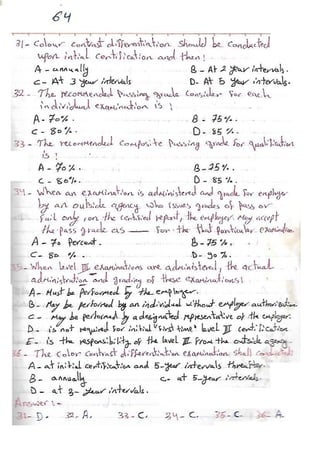 64
31- Colour contrast differentiation should be conducted
upon intial certification and then!
A- annually B- At 2 year intervals.
C- At 3 year intervals D- At 5 year intervals.
32- The recommended Passing grade Consider For each
individual examination is!
A- 70%. B- 75%.
C- 80%. D- 85%.
33- The recommended Composite Passing grade for qualification
is!
A- 70%. B- 75%.
C- 80%. D- 85%.
34- When an examination is administered and grade For employer
by an outside agency who issues grades of Pass or
Fail only on the certified report, the employer may accept
the pass grade as — For the that Particular examination
A- 70 Percent. B- 75%.
C- 80%. D- 90%.
35- When level III examinations are administered, the actual
administration and grading of these examinations!
A- Must be Performed by the employer.
B- May be Performed by an individual without employer authorization.
C- May be performed by a designated representative of the employer.
D- is not required For initial "First time" level III certification
E- is the responsibility of the level III From the outside agency
36- The Color contrast differentiation examination shall conducted:
A- at initial certification and 5-year intervals threafter.
B- annually C- at 5-year intervals.
D- at 3-year intervals.
Answer:-
31- D. 32- A. 33- C. 34- C. 35- C 36- A.